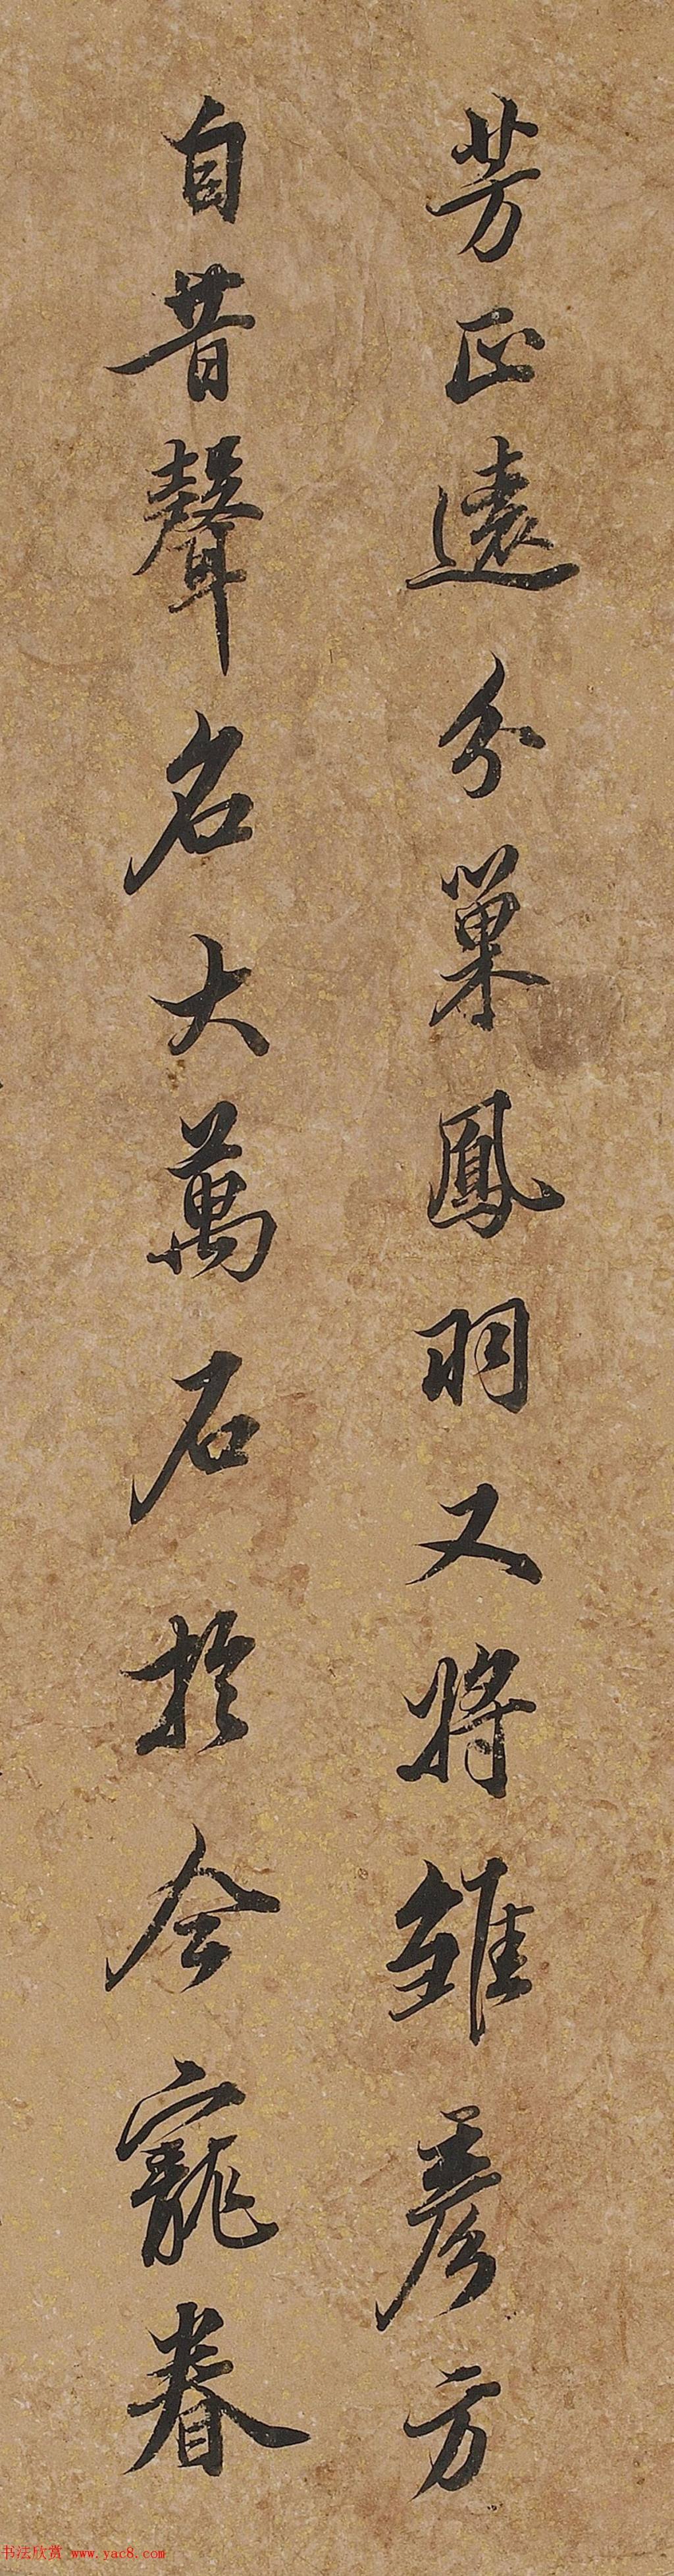 芳正遠分巢鳳羽又將雛彥方
自昔聲名大萬石於今寵眷
书法欣赏 www.yac8.com